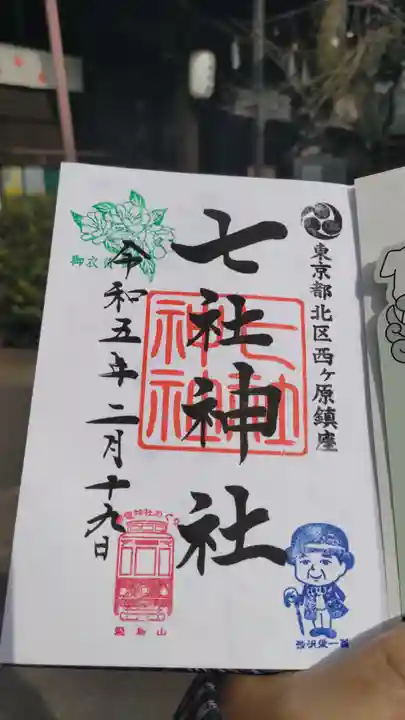 東京都北区西ヶ原鎮座
七社神社
七社
神社
令和五年二月十九日
飛鳥山
渋沢栄一翁